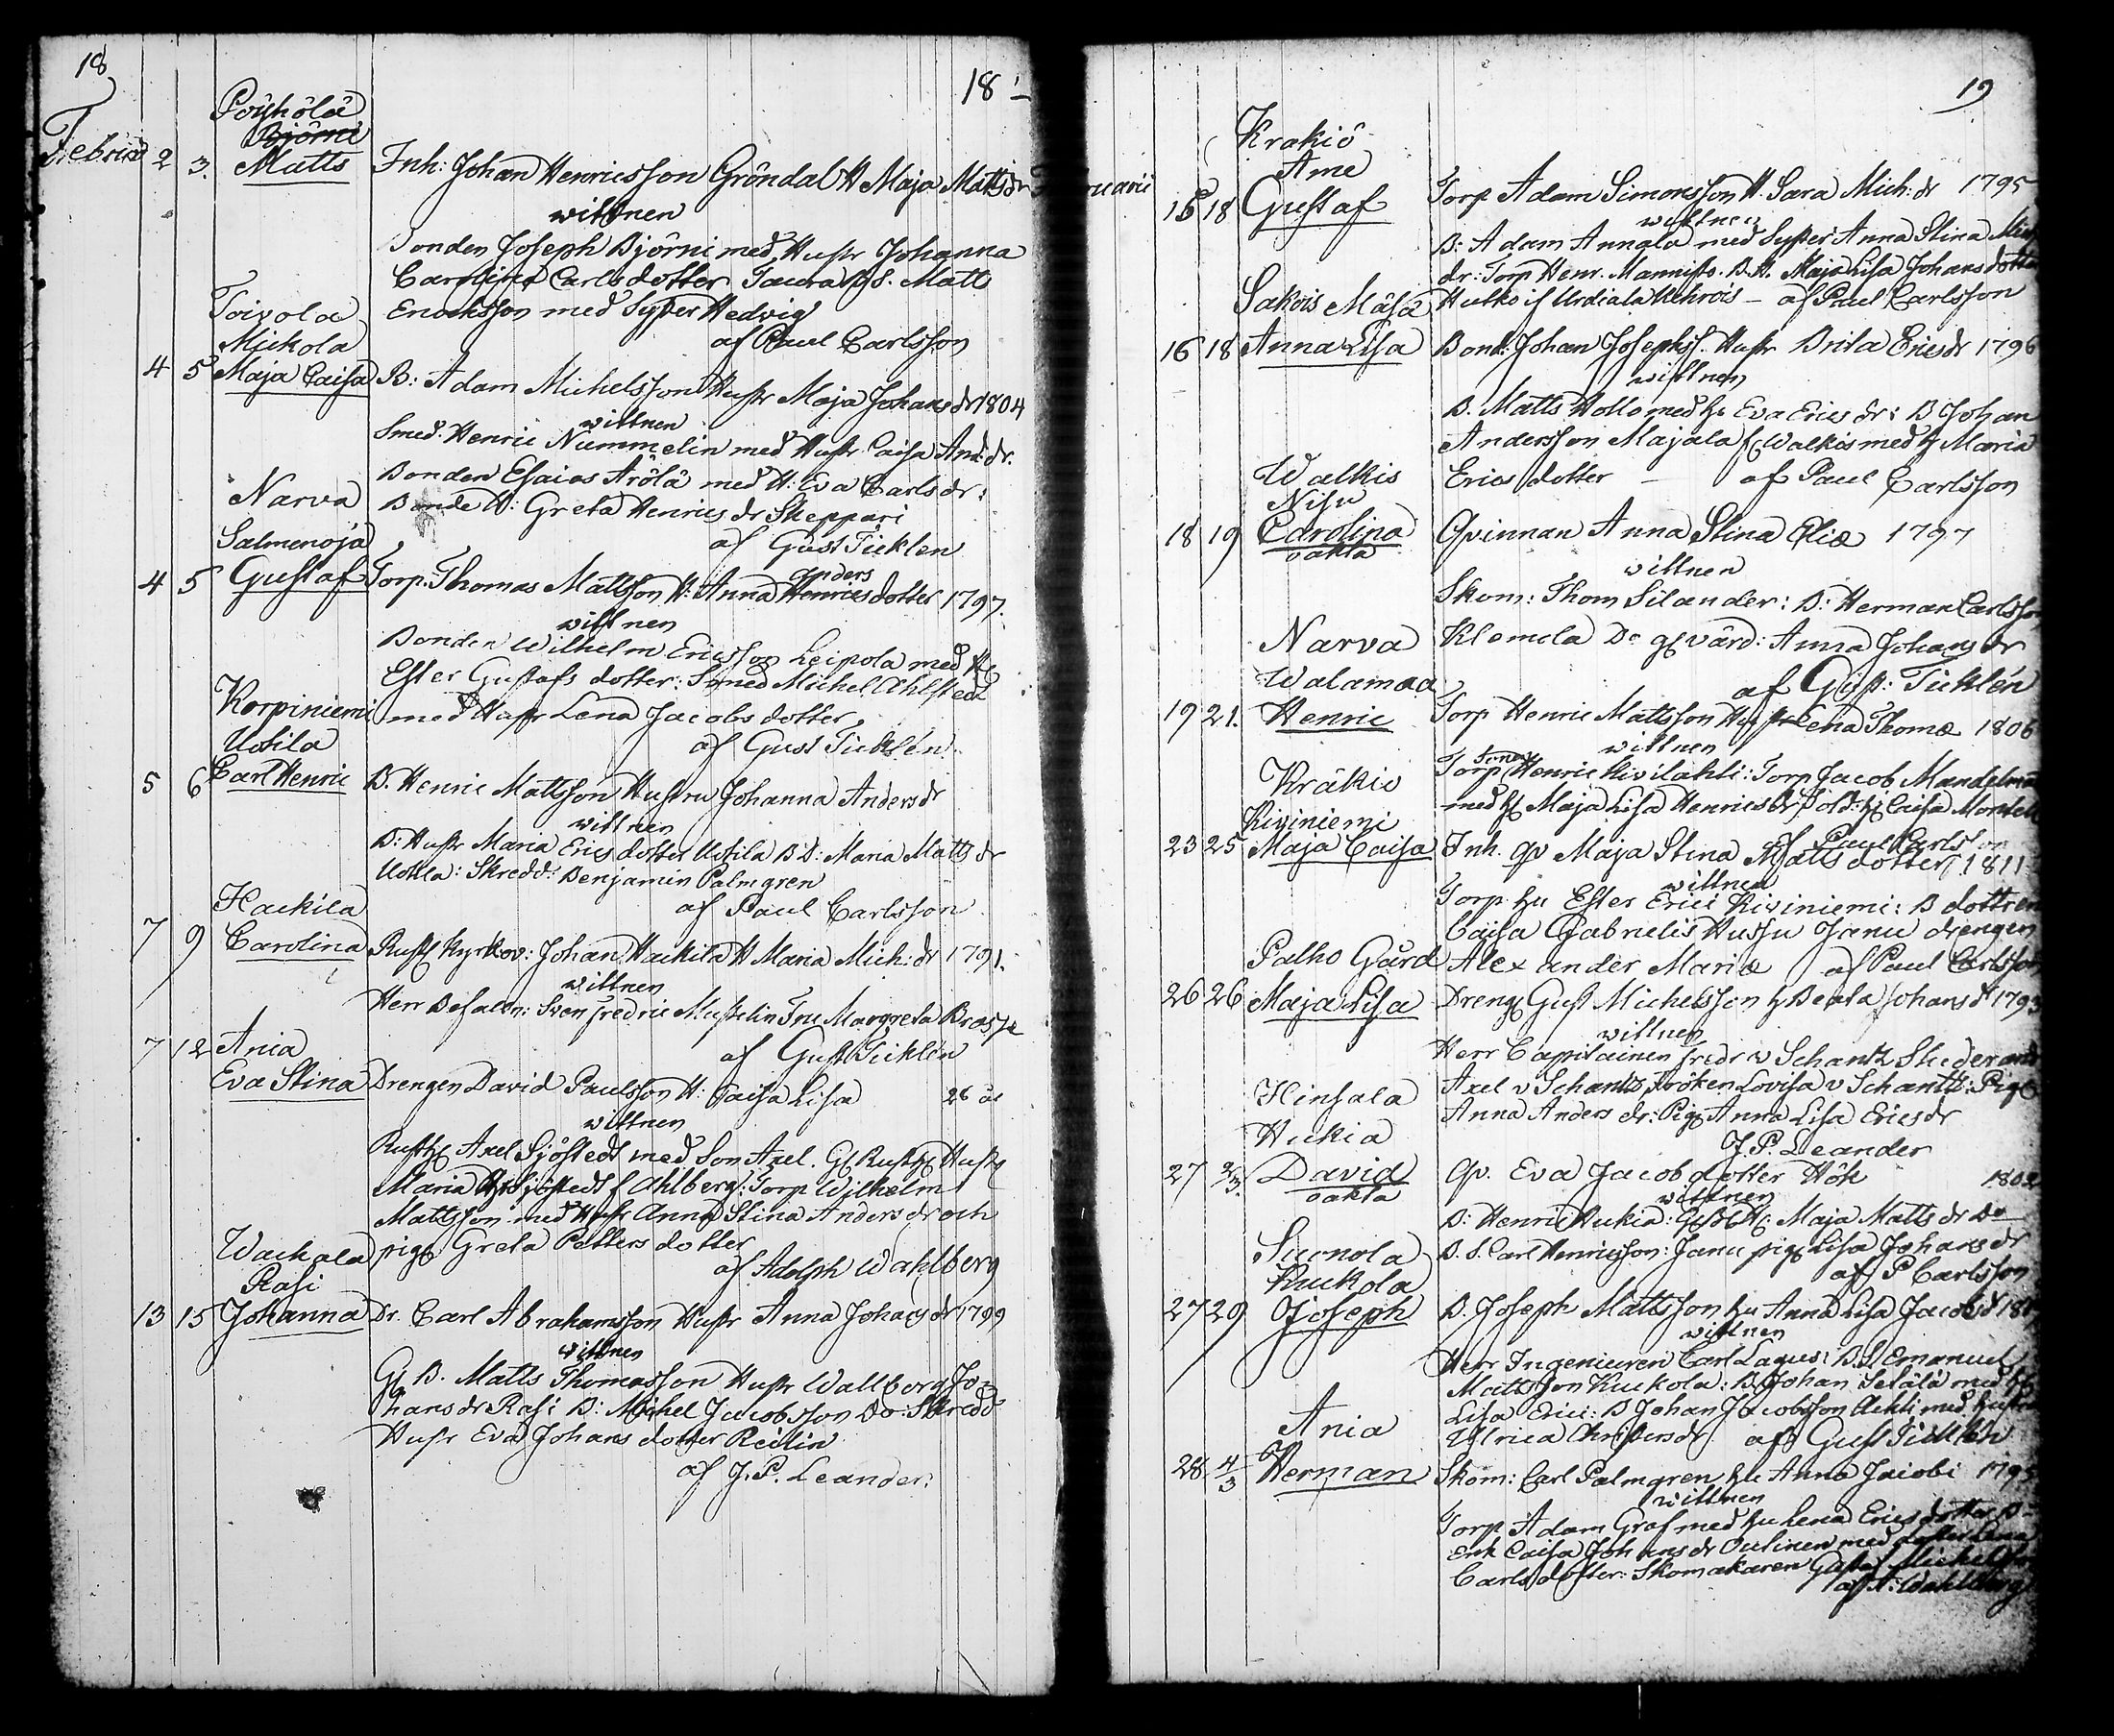 18
18
Björni
Februarii 2 3. Matts Inh: Johan Henricsson Gröndal H Maja Mattsdr
wittnen
Bonden Joseph Björni med Hustr Johanna
Carolina Carlsdotter Matts
Ericksson med Syster Hedvig
Toivola af Paul Carlsson
Mickola
4 5 Maja Caisa B: Adam Michelsson Hustr Maja Johansdr 1804
wittnen
Smed: Henric Nummelin med Hustr Caisa And:dr.
Bonden Esaias Arölä med H: Eva Carlsdr:
Narva Bonde H: Greta Henrics dr Skeppari
Salmenoja af Gust Ticklen
anders
4 5 Gustaf Torp: Thomas Mattsson H: Anna Henricsdotter 1797.
wittnen
Bonden Wilhelm Ericsson Leipola med H
Ester Gustafs dotter: Smed Michel Ahlstedt
Korpiniemi med Hustr Lena Jacobs dotter
Uotila af Gust Ticklén
5 6 Carl Henric B. Henric Mattsson Hustru Johanna Anders dr
wittnen
B: Hustr Maria Erics dotter Uotila B D: Maria Matts dr
Uotila: Skredd: Benjamin Palmgren
Hackila af Paul Carlsson
7 9 Carolina Rusth Kyrkov: Johan Hackila H Maria Mich: dr 1791.
wittnen
Herr Befaln: Sven Fredric Mustelin Fru Margreta
7 12 Ania af Gust Ticklén
Eva Stina Drengen David Paulsson H: Caisa Lisa 26 år
wittnen
Rusth Axel Sjöstedt med Son Axel. Gl Rusth Hustr
Maria Sjöstedt f Ahlberg: Torp Wilhelm
Mattsson med Hustr Anna Stina Anders dr och
Wackala pig: Greta Petters dotter
Rasi af Adolph Wahlberg
13 15 Johanna Dr. Carl Abrahamsson Hustr Anna Johans dr 1799
wittnen
Gl B. Matts Thomasson Hustr Wallborg Jo-
hans dr Rasi B: Michel Jacobsson Do: Skredd
Hustr Eva Johans dotter Reilin
af J. P. Leander:
19
Februarii
Krakiö
Ame
15 18 Gustaf Torp Adam Simonsson H. Sara Mich: dr 1795
wittnen
B: Adam Annala med Syster Anna Stina
dr: Torp Henr. B. H. Maja Lisa Johans dotter
Sakois Mäsä af Paul Carlsson
16 18 Anna Lisa Bond: Johan Josephss. Hustr Brita Erics dr 1796
wittnen
B. Matts Hollo med h Eva Erics dr: B Johan
Andersson Majala f Walkis med h Maria
Walkis Erics dotter — af Paul Carlsson
Nisu
18 19 Carolina Qvinnan Anna Stina Eliæ 1797
oäkta
wittnen
Skom: Thom Silander: B: Herman Carlsson
Narva Klemela Do gl värd: Anna Johans dr
Walamaa af Gust: Ticklén
19 21. Henric Torp Henric Mattsson Hustr Lena Thomæ 1806
wittnen
Torp Henric Kivilahti: Torp Jacob Mandelin
Kräkiö med h Maja Lisa Henrics dr Sold: h Caisa Montell
Kiviniemi af Paul Carlsson
23 25 Maja Caisa Inh. qv Maja Stina Matts dotter 1811
wittnen
Torp hu Ester Erici Kiviniemi: B dottren
Caisa Gabrielis Hussu Janu drengen
Palho Gård Alexander Mariæ af Paul Carlsson
26 26 Maja Lisa Dreng Gust Michelsson h Beata Johans dr 1793
wittnen
Herr Capitainen Fredr v Schantz Studerand
Axel v Schantz Fröken Lovisa v Schantz: Pig
Hinsala Anna Anders dr: Pig Anna Lisa Erics dr
Hukia J. P. Leander
27 2/3. David Qv. Eva Jacobs dotter Hök 1802
oäkta
wittnen
B: Henric Hukia: H: Maja Matts dr Do
Suonola B. S. Carl Henricsson: Janu pig Lisa Johans dr
Kuckola af P Carlsson
27 29 Joseph B. Joseph Mattsson hu Anna Lisa Jacobs dr
wittnen
Herr Ingenieuren Carl Lagus: B. S. Emanuel
Mattsson Kuckola: B Johan Selälä med h
Lisa Erici: B Johan Jacobsson med hustr
Ania Ulrica Christers dr af Gust Ticklén
28 4/3 Herman Skom: Carl Palmgren hu Anna Jacobi
wittnen
Torp Adam Graf med hu Lena Erics dotter
Enk Caisa Johans dr Oulinen med dotter Lena
Carls dotter: Skomakaren Gustaf
af A: Wahlberg